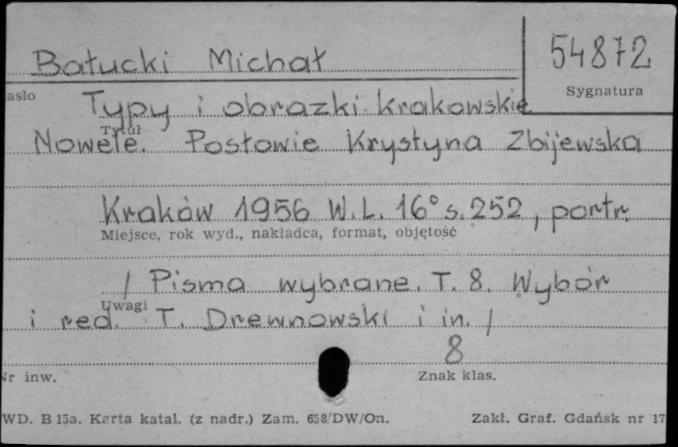 Bałucki Michał
54872
asło
Sygnatura
Typy i obrazki krakowskie
Tytuł
Nowele. Posłowie Krystyna Zbijewska
Kraków 1956 W.L. 16° s. 252, portr.
Miejsce, rok wyd., nakładca, format, objętość
/ Pisma wybrane. T. 8. Wybór
Uwagi
i red. T. Drewnowski i in. /
8
Nr inw.
Znak klas.
WD. B 15a. Karta katal. (z nadr.) Zam. 658/DW/On.
Zakł. Graf. Gdańsk nr 17